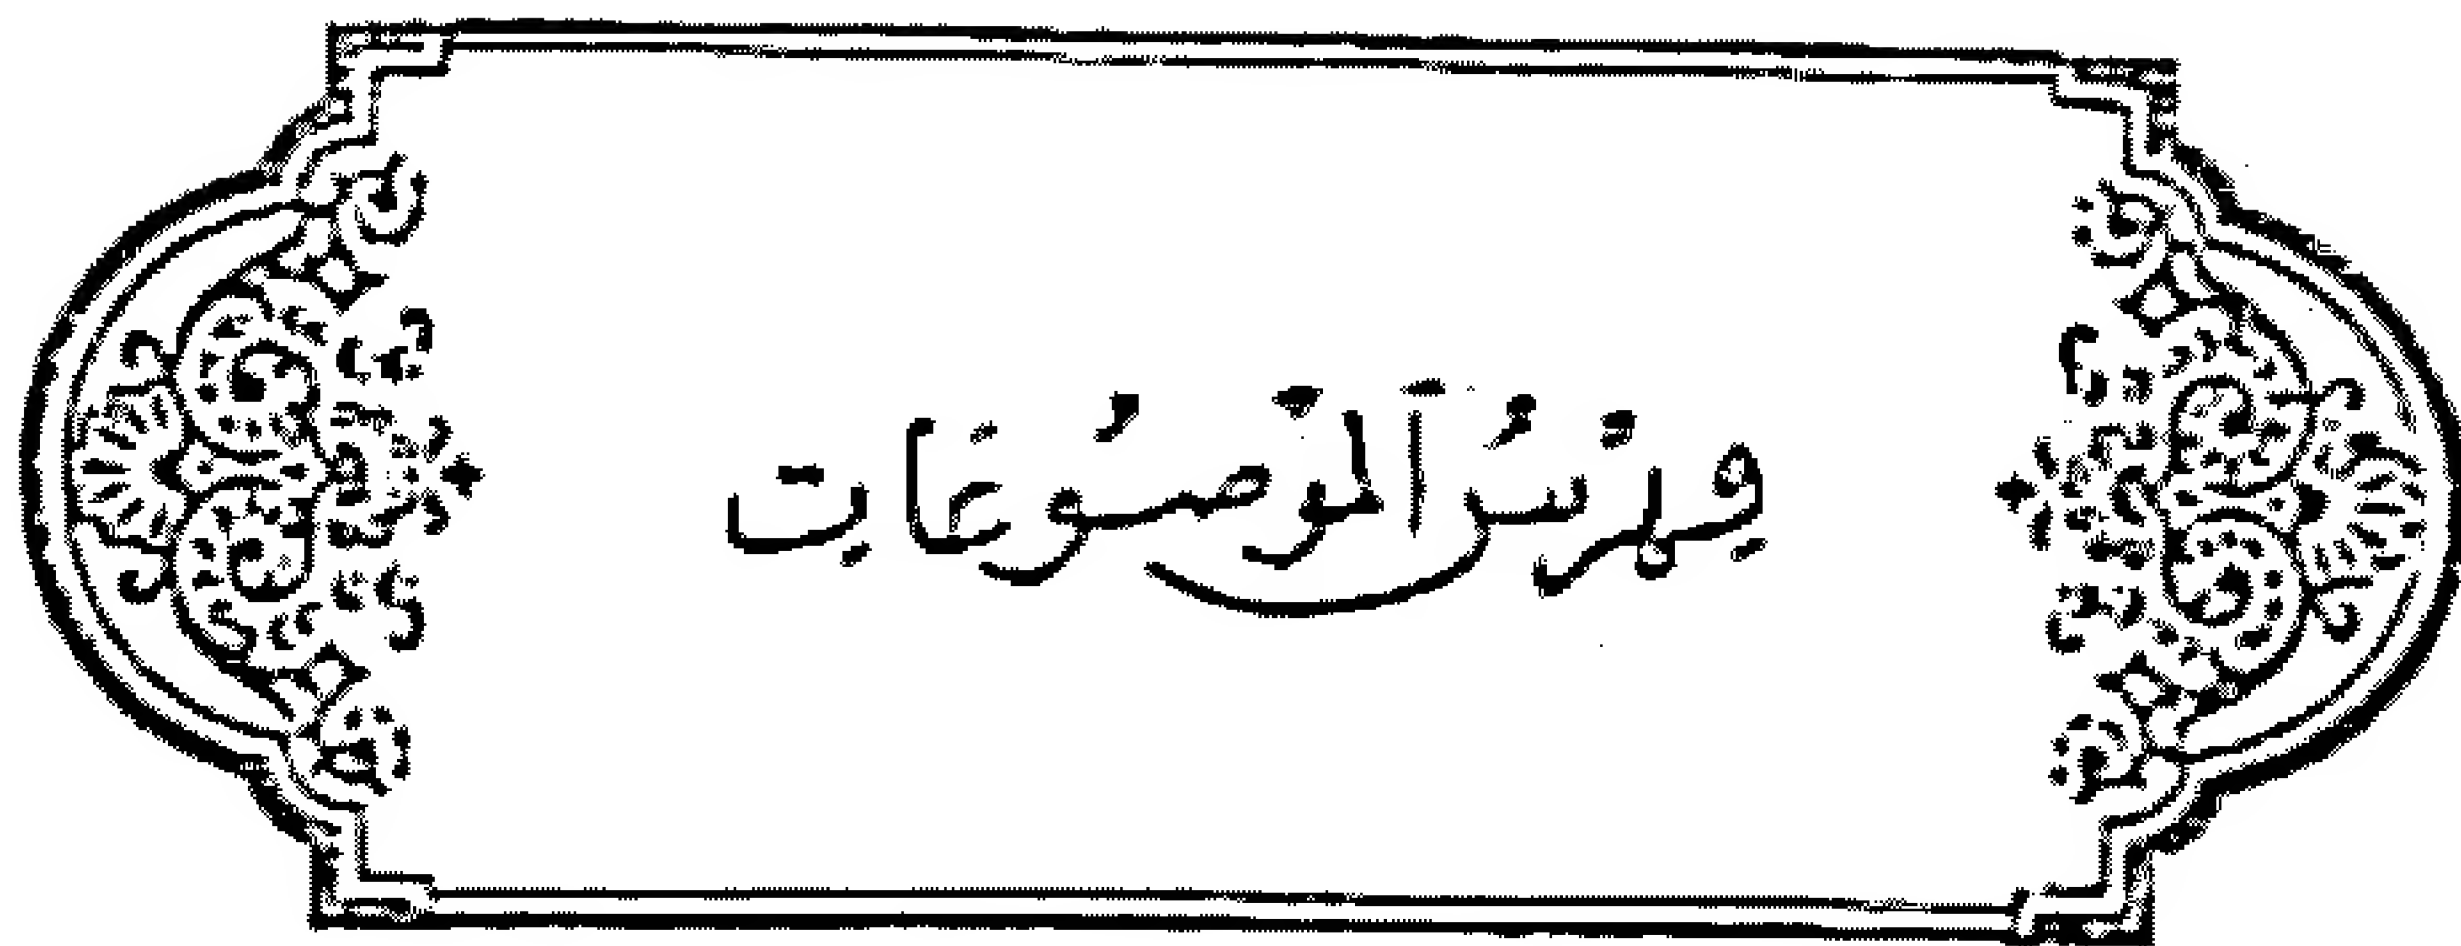 فِهْرِسُ ٱلْمَوْضُوعَاتِ